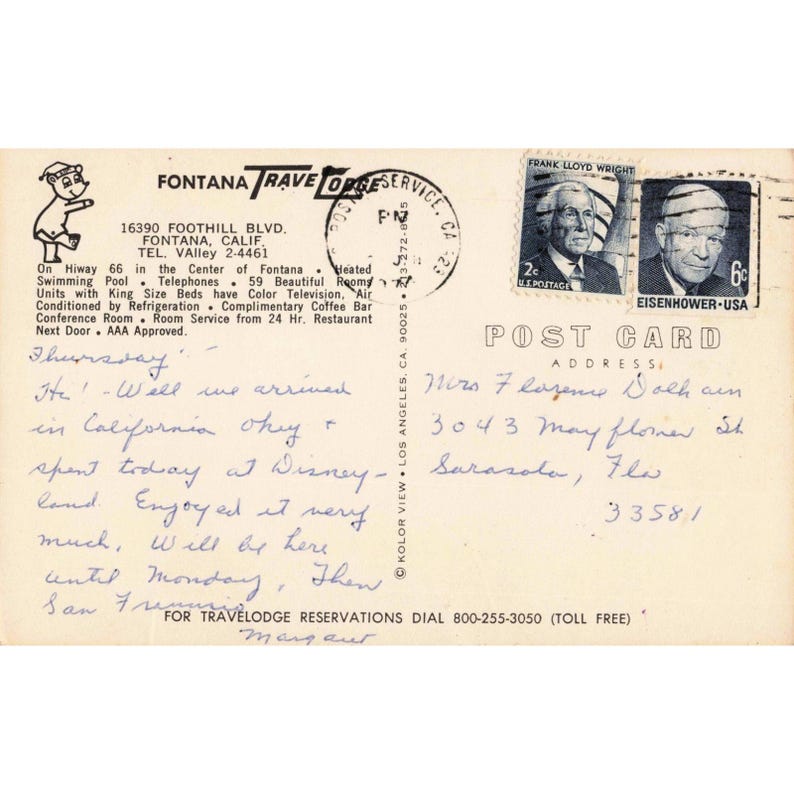 FONTANA TRAVELODGE
16390 FOOTHILL BLVD.
FONTANA, CALIF.
TEL. VAlley 2-4461
On Hiway 66 in the Center of Fontana • Heated
Swimming Pool • Telephones • 59 Beautiful Rooms
Units with King Size Beds have Color Television, Air
Conditioned by Refrigeration • Complimentary Coffee Bar
Conference Room • Room Service from 24 Hr. Restaurant
Next Door • AAA Approved.
Thursday
Hi! - Well we arrived
in California okey +
spent today at Disney-
land. Enjoyed it very
much. Will be here
until Monday, Then
San
Margaret
FOR TRAVELODGE RESERVATIONS DIAL 800-255-3050 (TOLL FREE)
© KOLOR VIEW • LOS ANGELES, CA. 90025 • 213-272-
POSTAL SERVICE, CA
PM
FRANK LLOYD WRIGHT
2c
U.S. POSTAGE
6c
EISENHOWER·USA
POST CARD
ADDRESS
Mrs Florence
3043 Mayflower St
Sarasota, Fla
33581